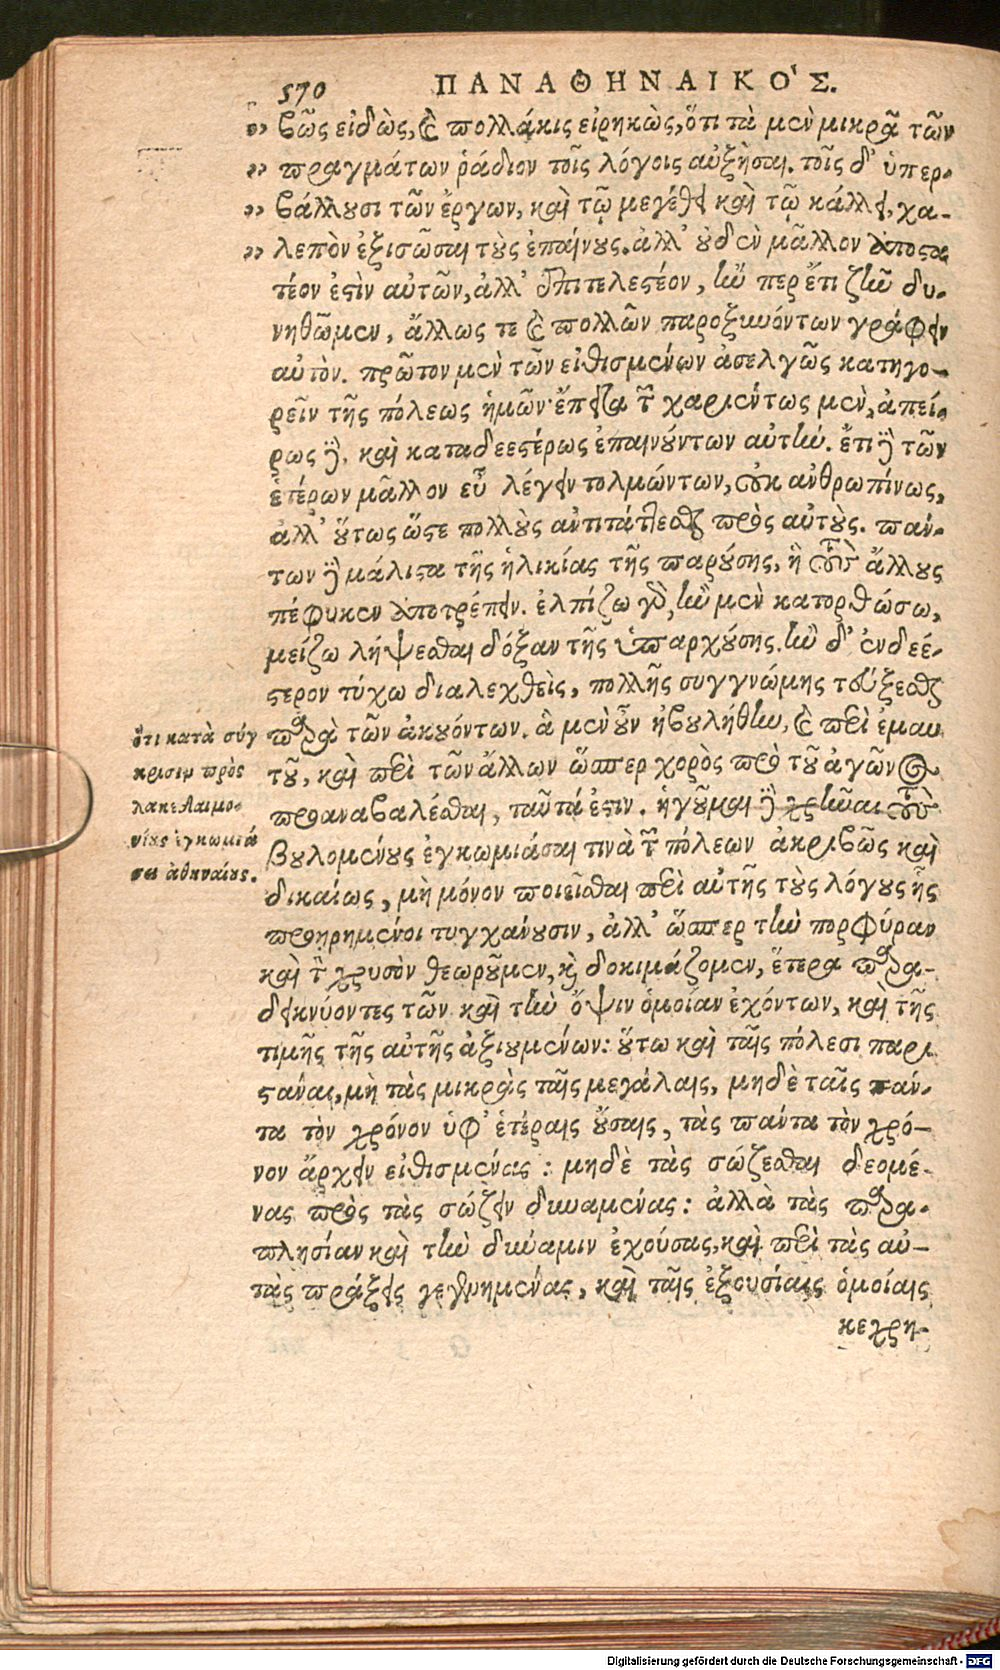 570 ΠΑΝΑΘΗΝΑΙΚΟ'Σ.
βῶς εἰδὼς, καὶ πολλάκις εἰρηκὼς, ὅτι τὰ μὲν μικρὰ τῶν
πραγμάτων ῥάδιον τοῖς λόγοις αὐξῆσαι. τοῖς δ' ὑπερ-
βάλλουσι τῶν ἔργων, καὶ τῷ μεγέθει καὶ τῷ κάλλει, χα-
λεπὸν ἐξισῶσαι τοὺς ἐπαίνους. ἀλλ' οὐδὲν μᾶλλον ἀποστα
τέον ἐστὶν αὐτῶν, ἀλλ' ἐπιτελεστέον, ἤν περ ἔτι ζῆν δυ-
νηθῶμεν, ἄλλως τε καὶ πολλῶν παροξυνόντων γράφειν
αὐτόν. πρῶτον μὲν τῶν εἰθισμένων ἀσελγῶς κατηγο-
ρεῖν τῆς πόλεως ἡμῶν· ἔπειτα τῶν χαριέντως μὲν, ἀπεί-
ρως δὲ, καὶ καταδεεστέρως ἐπαινούντων αὐτήν. ἔτι δὲ τῶν
ἑτέρων μᾶλλον εὖ λέγειν τολμώντων, οὐκ ἀνθρωπίνως,
ἀλλ' οὕτως ὥστε πολλοὺς ἀντιτάττεσθαι πρὸς αὐτούς. πάν-
των δὲ μάλιστα τῆς ἡλικίας τῆς παρούσης, ἣ τοὺς ἄλλους
πέφυκεν ἀποτρέπειν. ἐλπίζω γὰρ, ἢν μὲν κατορθώσω,
μείζω λήψεσθαι δόξαν τῆς ὑπαρχούσης. ἢν δ' ἐνδεέ-
στερον τύχω διαλεχθεὶς, πολλῆς συγγνώμης τεύξεσθαι
παρὰ τῶν ἀκουόντων. ἃ μὲν οὖν ἠβουλήθην, καὶ περὶ ἐμαυ
τοῦ, καὶ περὶ τῶν ἄλλων ὥσπερ χορὸς πρὸ τοῦ ἀγῶνος
προαναβαλέσθαι, ταῦτά ἐστιν. ἡγοῦμαι δὲ χρῆναι τοὺς
βουλομένους ἐγκωμιάσαι τινὰ τῶν πόλεων ἀκριβῶς καὶ
δικαίως, μὴ μόνον ποιεῖσθαι περὶ αὐτῆς τοὺς λόγους ἧς
προῃρημένοι τυγχάνουσιν, ἀλλ' ὥσπερ τὴν πορφύραν
καὶ τὸν χρυσὸν θεωροῦμεν, καὶ δοκιμάζομεν, ἕτερα παρα-
δεικνύοντες τῶν καὶ τὴν ὄψιν ὁμοίαν ἐχόντων, καὶ τῆς
τιμῆς τῆς αὐτῆς ἀξιουμένων: οὕτω καὶ ταῖς πόλεσι παρι
στάναι, μὴ τὰς μικρὰς ταῖς μεγάλαις, μηδὲ ταῖς πάν-
τα τὸν χρόνον ὑφ' ἑτέραις οὔσαις, τὰς πάντα τὸν χρό-
νον ἄρχειν εἰθισμένας: μηδὲ τὰς σώζεσθαι δεομέ-
νας πρὸς τὰς σώζειν δυναμένας: ἀλλὰ τὰς παρα-
πλησίαν καὶ τὴν δύναμιν ἐχούσας, καὶ περὶ τὰς αὐ-
τὰς πράξεις γεγενημένας, καὶ ταῖς ἐξουσίαις ὁμοίαις
κεχρη-
ὅτι κατὰ σύγ
κρισιν πρὸς
λακεδαιμο-
νίους ἐγκωμιά
σει ἀθηναίους.
Digitalisierung gefördert durch die Deutsche Forschungsgemeinschaft - DFG